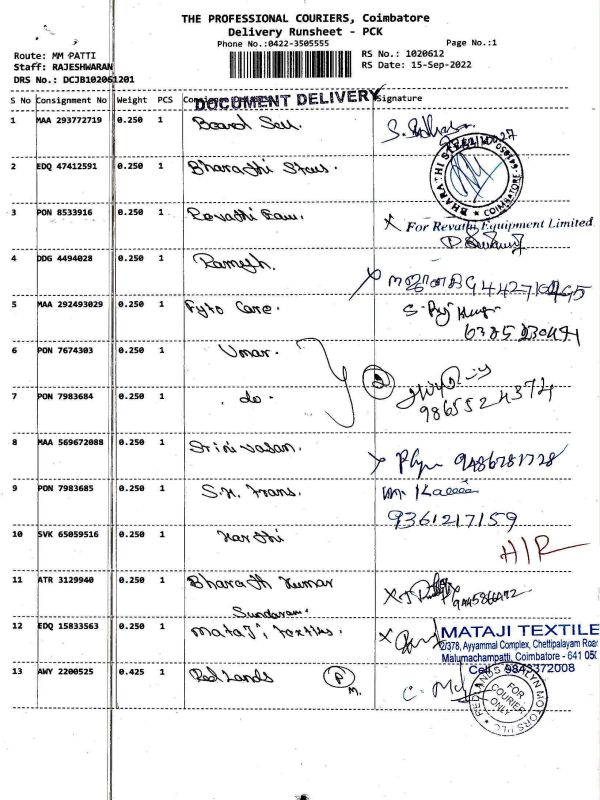 THE PROFESSIONAL COURIERS, Coimbatore
Delivery Runsheet - PCK
Phone No.:0422-3505555
Page No.:1
Route: MM PATTI
Staff: RAJESHWARAN
DRS No.: DCJB102061201
RS No.: 1020612
RS Date: 15-Sep-2022
S No Consignment No Weight PCS Signature
DOCUMENT DELIVERY
1 MAA 293772719 0.250 1
2 EDQ 47412591 0.250 1 Bharathi Stores.
BHARATHI COIMBATORE
3 PON 8533916 0.250 1 Revathi
For Revathi Equipment Limited
4 DDG 4494028 0.250 1 Ramesh.
5 MAA 292493029 0.250 1 Fyto Care.
6 PON 7674303 0.250 1 Umar. 2
7 PON 7983684 0.250 1 do. 9865524374
8 MAA 569672088 0.250 1 Srinivasan. 9486781728
9 PON 7983685 0.250 1 S.K. Trans.
9361217159
10 SVK 65059516 0.250 1 Karthi H/R
11 ATR 3129940 0.250 1 Bharath Kumar
Sundaram.
12 EDQ 15833563 0.250 1 Mataji Textiles.
MATAJI TEXTILE
2/378, Ayyammal Complex, Chettipalayam Road
Malumachampatti, Coimbatore - 641 050
Cell: 9843372008
13 AWY 2200525 0.425 1 Red Lands P
M.
REDLANDS ASHLYN MOTORS PLC
FOR
COURIER
ONLY